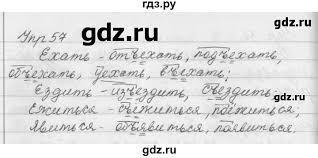 гдз.ру
Упр 57
Ехать – отъехать, подъехать,
объехать, уехать, въехать;
Ездить – изъездить, съездить.
Ежиться – съёжиться, поёжиться.
Явиться – объявиться, появиться.
gdz.ru